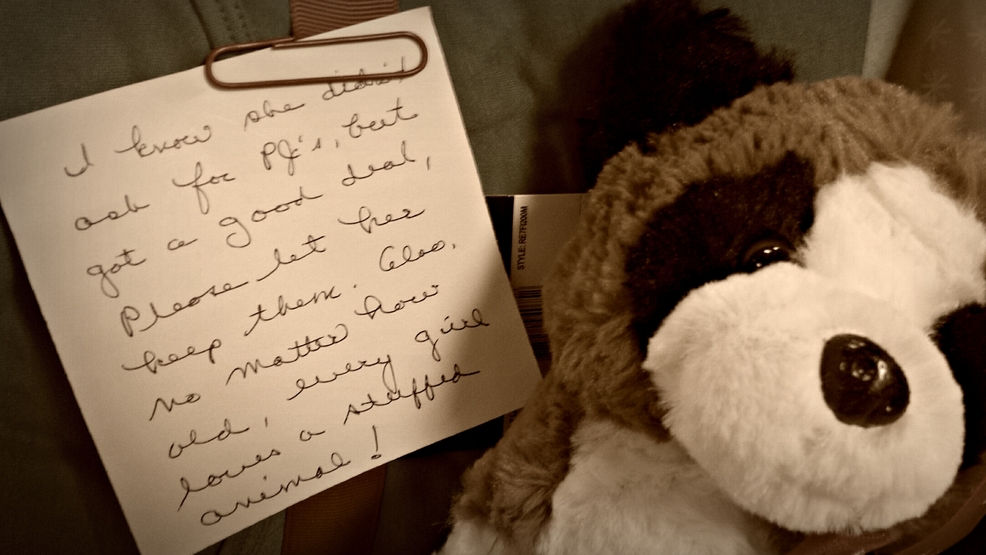 I know she didn't
ask for PJ's, but
got a good deal,
Please let her
keep them. Also,
no matter how
old, every girl
loves a stuffed
animal!
STYLE: RE7FI200M